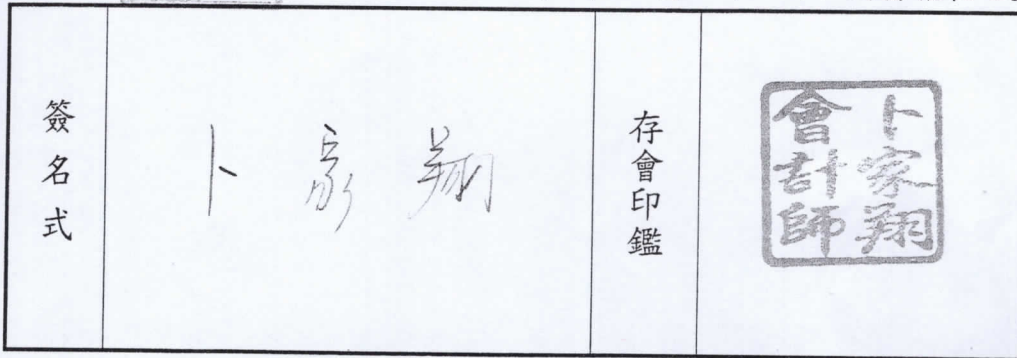 簽名式
卜家翔
存會印鑑
卜家翔
會計師